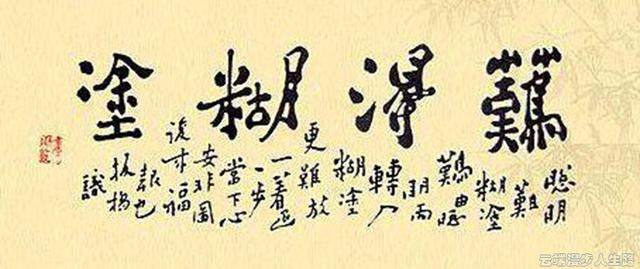 難得糊塗
聰明
難
糊塗
難由聰
明而
轉入
糊塗
更難放
一着退
一步
當下心
安非圖
後来福
報也
板橋
識
云端漫步人生路